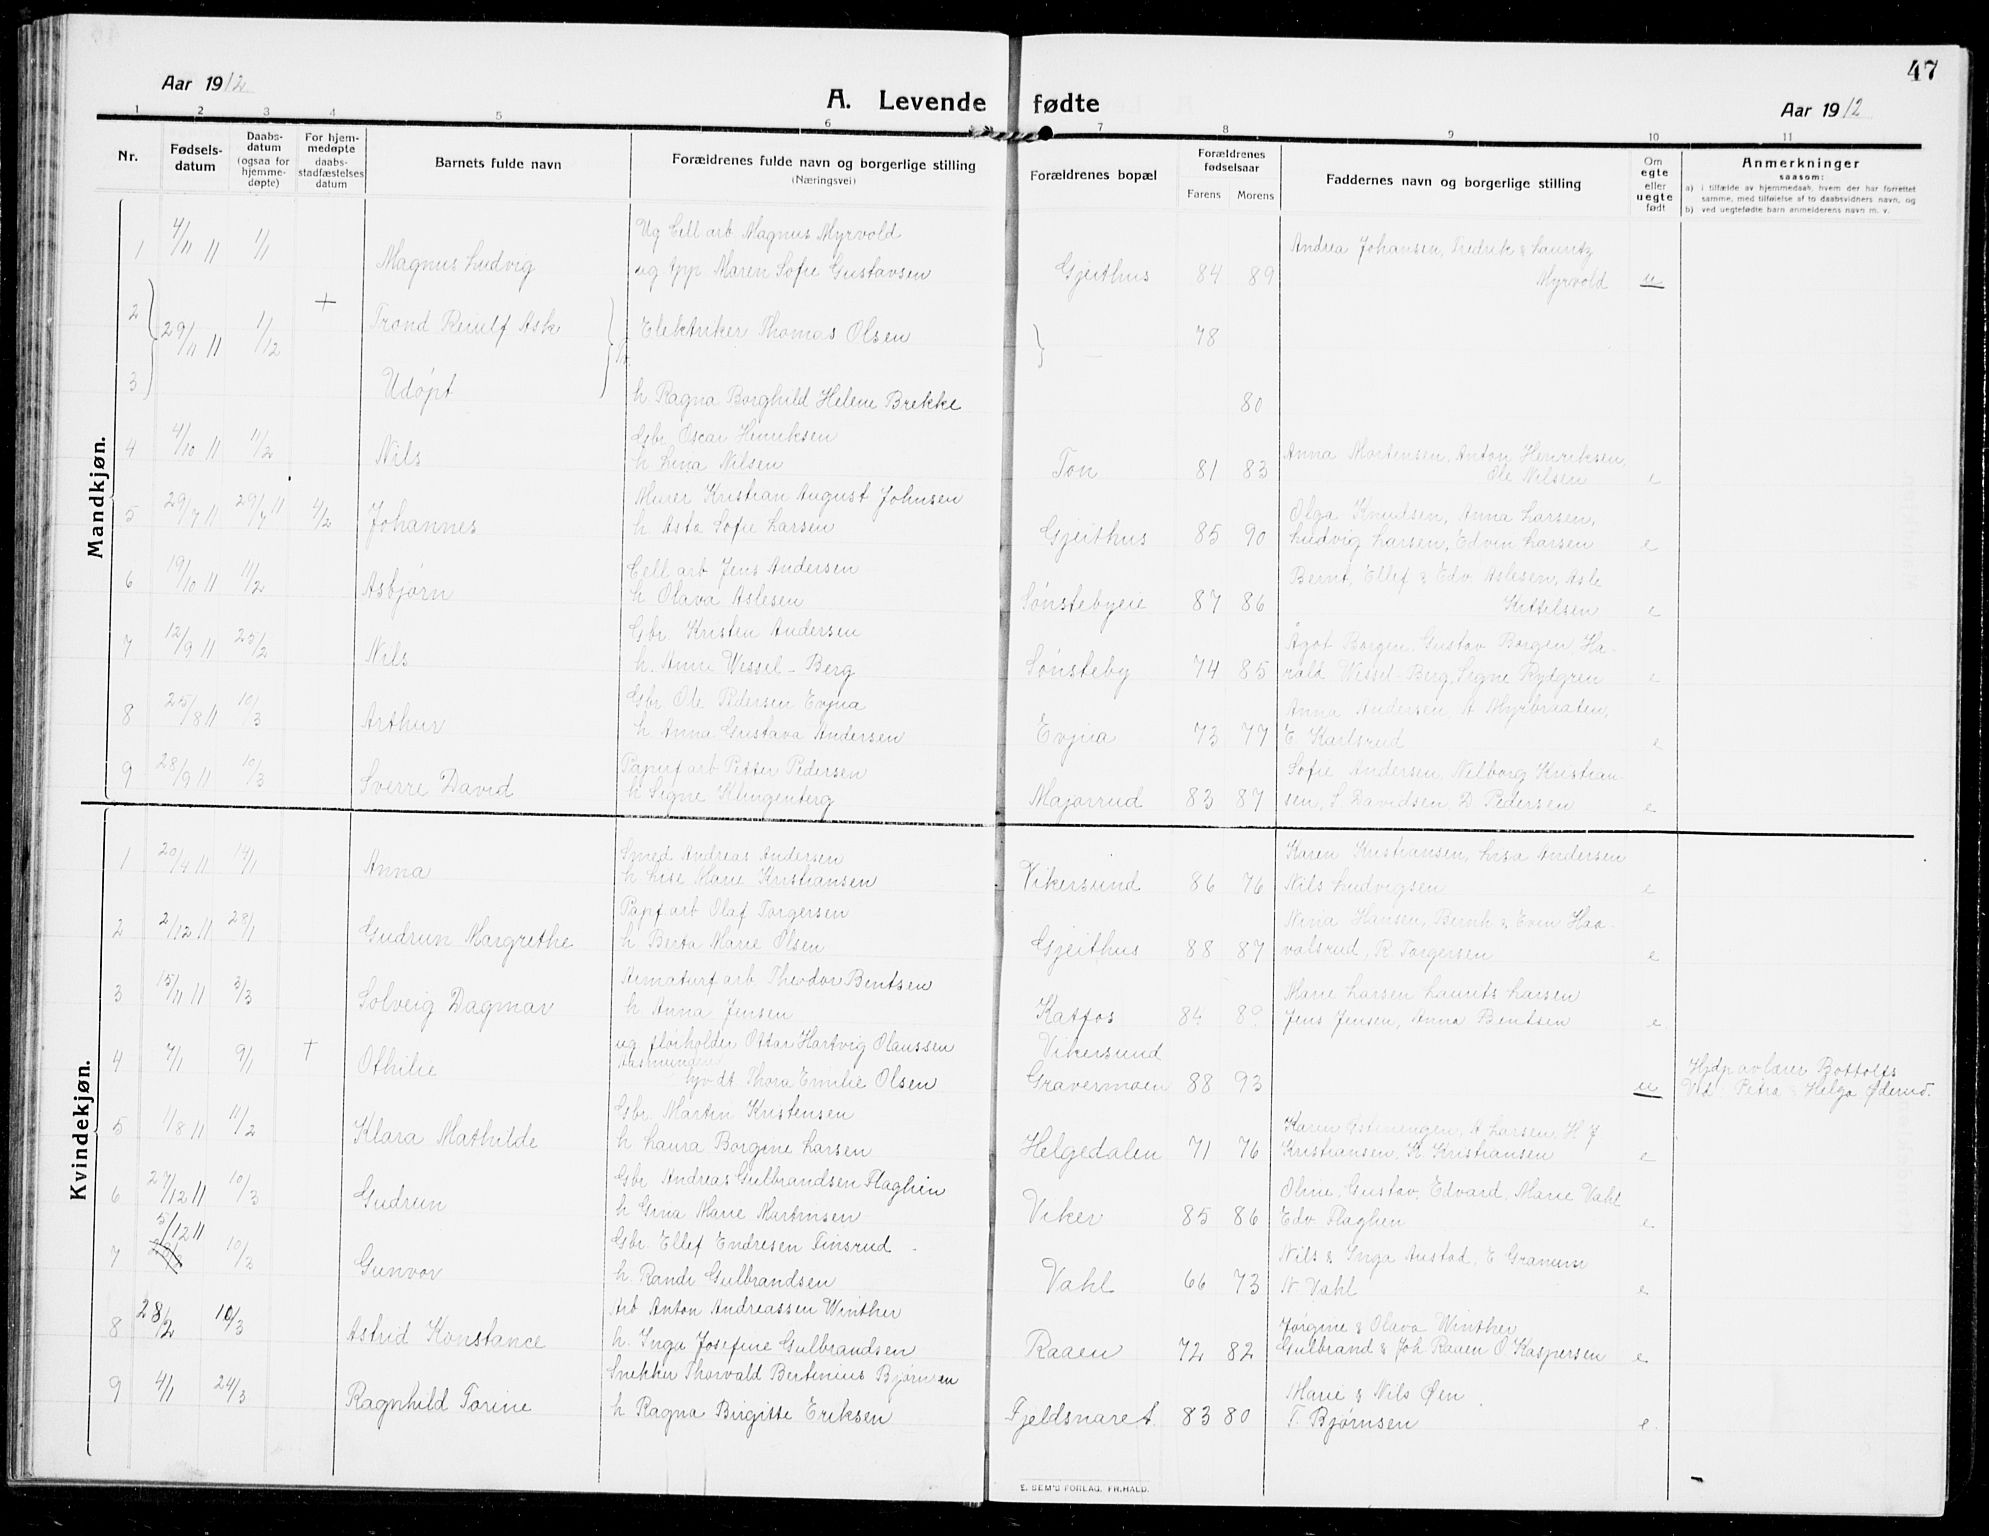 47
Aar 1912
A. Levende fødte
Aar 1912
1 2 3 4 5 6 7 8 9 10 11
Nr.
Fødsels-
datum
Daabs-
datum
(ogsaa for
hjemme-
døpte)
For hjem-
medøpte
daabs-
stadfæstelses
datum
Barnets fulde navn
Forældrenes fulde navn og borgerlige stilling
(Næringsvei)
Forældrenes bopæl
Forældrenes
fødselsaar
Farens Morens
Faddernes navn og borgerlige stilling
Om
egte
eller
uegte
født
Anmerkninger
saasom:
a) i tilfælde av hjemmedaab, hvem der har forrettet
samme, med tilføielse af to daabsvidners navn, og
b) ved uegtefødte barn anmelderens navn m. v.
Mandkjøn.
1 4/11 11 1/1 Magnus Ludvig
Ug Cell arb Magnus Myrvold
ug pp Maren Sofie Gustavsen
Gjeithus 84 89
Andrea Johansen, Fredrik & Lauritz
Myrvold u
2 29/11 11 1/12 + Trond Reiulf Ask
Elektriker Thomas Olsen
— 78
3 Udøpt
h. Ragna Borghild Helene Brekke
80
4 4/10 11 11/2 Nils
Gbr Oscar Henriksen
h Lina Nilsen
Ton 81 83
Anna Mortensen, Anton Henriksen,
Ole Nilsen e
5 29/7 11 29/7 11 4/2 Johannes
Murer Kristian August Johnsen
h. Asta Sofie Larsen
Gjeithus 85 90
Olga Knudsen, Anna Larsen,
Ludvig Larsen, Edvin Larsen e
6 19/10 11 11/2 Asbjørn
Cell arb Jens Andersen
h Olava Aslesen
Sønstebyeie 87 86
Bernt, Ellef & Edv Aslesen, Asle
Kittelsen e
7 12/9 11 25/2 Nils
Gbr Kristen Andersen
h. Anne Wessel-Berg
Sønsteby 74 85
Ågot Borgen, Gustav Borgen, Ha-
rald Wessel-Berg, Signe Rydgren e
8 25/8 11 10/3 Arthur
Gbr Ole Pedersen Evjua
h Anna Gustava Andersen
Evjua 73 77
Anna Andersen, A Myrbraaten,
E Karlsrud e
9 28/9 11 10/3 Sverre David
Papirf arb Petter Pedersen
h Signe Klingenberg
Majorrud 83 87
Sofie Andersen, Nelborg Kristian-
sen, S. Davidsen, D Pedersen e
Kvindekjøn.
1 20/4 11 14/1 Anna
Smed Andreas Andersen
h Lise Marie Kristiansen
Vikersund 86 76
Karen Kristiansen, Lisa Andersen
Nils Ludvigsen e
2 2/12 11 28/1 Gudrun Margrethe
Papf arb Olaf Torgersen
h Berta Marie Olsen
Gjeithus 88 87
Nina Hansen, Bernh & Even Haa-
valsrud, R. Torgersen e
3 15/11 11 3/3 Solveig Dagmar
Armaturf arb Theodor Bentsen
h Anna Jensen
Katfos 84 89
Marie Larsen Laurits Larsen
Jens Jensen, Anna Bentsen e
4 7/1 9/1 + Othilie
ug fløiholder Ottar Hartvig Olaussen
tjv dt Thora Emilie Olsen
Vikersund
Gravermoen 88 93 u
Hjdp av lærer Bottolfs
Vid. Petra & Helga Øderud.
5 1/8 11 11/2 Klara Mathilde
Gbr. Martin Kristensen
h Laura Borgine Larsen
Helgedalen 71 76
Karen Istinengen, A Larsen, H J
Kristiansen, K Kristiansen e
6 27/12 11 10/3 Gudrun
Gbr Andreas Gulbrandsen Flaghen
h Gina Marie Martinsen
Viker 85 86
Oline, Gustav, Edvard, Marie Vahl
Edv Flaghen e
7 5/12 11 10/3 Gunvor
Gbr. Ellef Endresen Finsrud
h. Randi Gulbrandsen
Vahl 66 73
Nils & Inga Austad, E Granum
N Vahl e
8 28/2 10/3 Astrid Konstance
Arb Anton Andreassen Winther
h. Inga Josefine Gulbrandsen
Raaen 72 82
Jørgine & Olava Winther
Gulbrand & Joh Raaen O Kaspersen e
9 4/1 24/3 Ragnhild Torine
Snekker Thorvald Bertinius Bjørnsen
h Ragna Birgitte Eriksen
Fjeldsnaret. 83 80
Marie & Nils Øen
T. Bjørnsen e.
E. SEM'S FORLAG. FR.HALD.